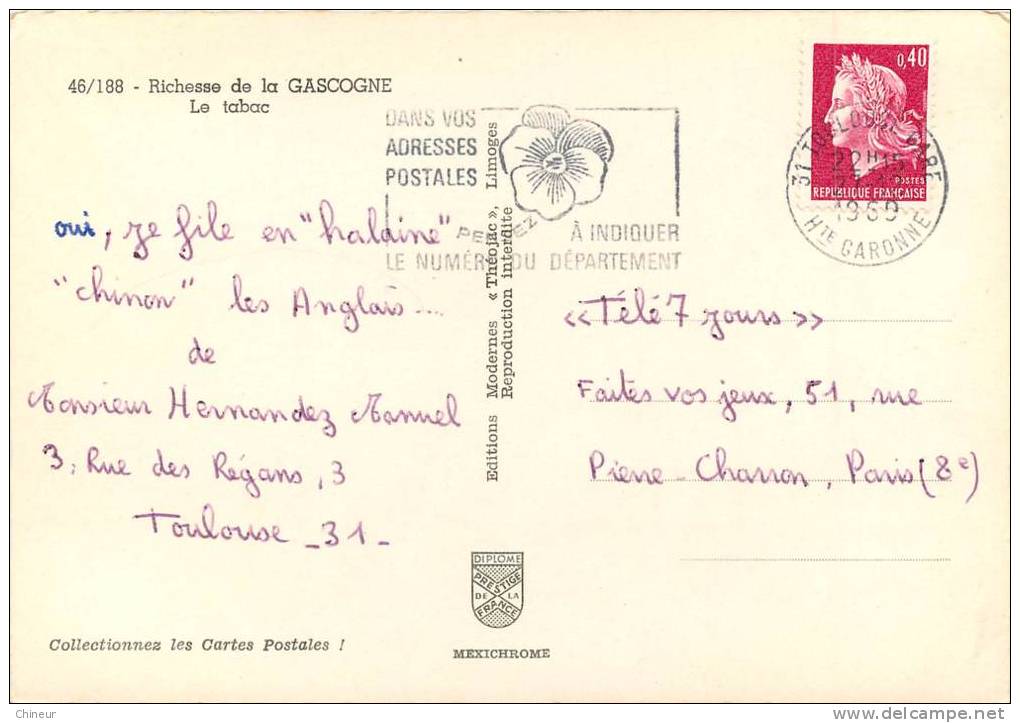 46/188 - Richesse de la GASCOGNE
Le tabac
DANS VOS
ADRESSES
POSTALES
PENSEZ
À INDIQUER
LE NUMÉRO DU DÉPARTEMENT
0,40
POSTES
REPUBLIQUE FRANÇAISE
31 TOULOUSE GARE
22H15
1969
HTE GARONNE
oui, je file en "halaine"
"chinon" les Anglais....
de
Monsieur Hernandez Manuel
3, Rue des Régans, 3
Toulouse _ 31 _
Editions Modernes « Théojac », Limoges
Reproduction interdite
«Télé 7 jours»
Faites vos jeux, 51, rue
Pierre-Charron, Paris (8e)
DIPLOME
PRESTIGE
DE LA
FRANCE
Collectionnez les Cartes Postales !
MEXICHROME
Chineur
delcampe.net